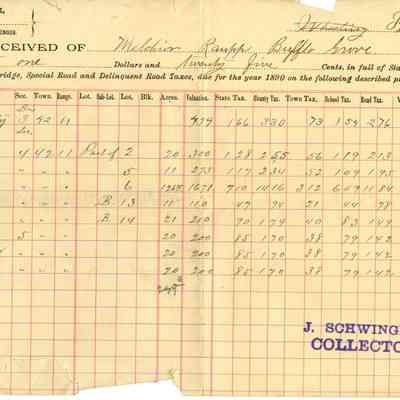 Wheeling
CEIVED OF Melchior Raupp Buffalo Grove
one Dollars and twenty five Cents, in full of Sta
ridge, Special Road and Delinquent Road Taxes, due for the year 1890 on the following described p
Sec. Town. Range. Lot. Sub-Lot. Lot. Blk. Acres. Valuation. State Tax. County Tax. Town Tax. School Tax. Road Tax.
42 11 166 330 73 154 276
4 42 11 Part of 2 20 300 128 255 56 119 213
" " " 5 11 275 117 234 52 109 195
" " " 6 1671 710 1416 312 649 1184
" " " B 13 11 110 47 94 21 44 78
" " " B 14 21 210 90 179 40 83 149
5 " " 20 200 85 170 38 79 142
" " " 20 200 85 170 38 79 142
" " " 20 200 85 170 38 79 142
J. SCHWING
COLLECTO